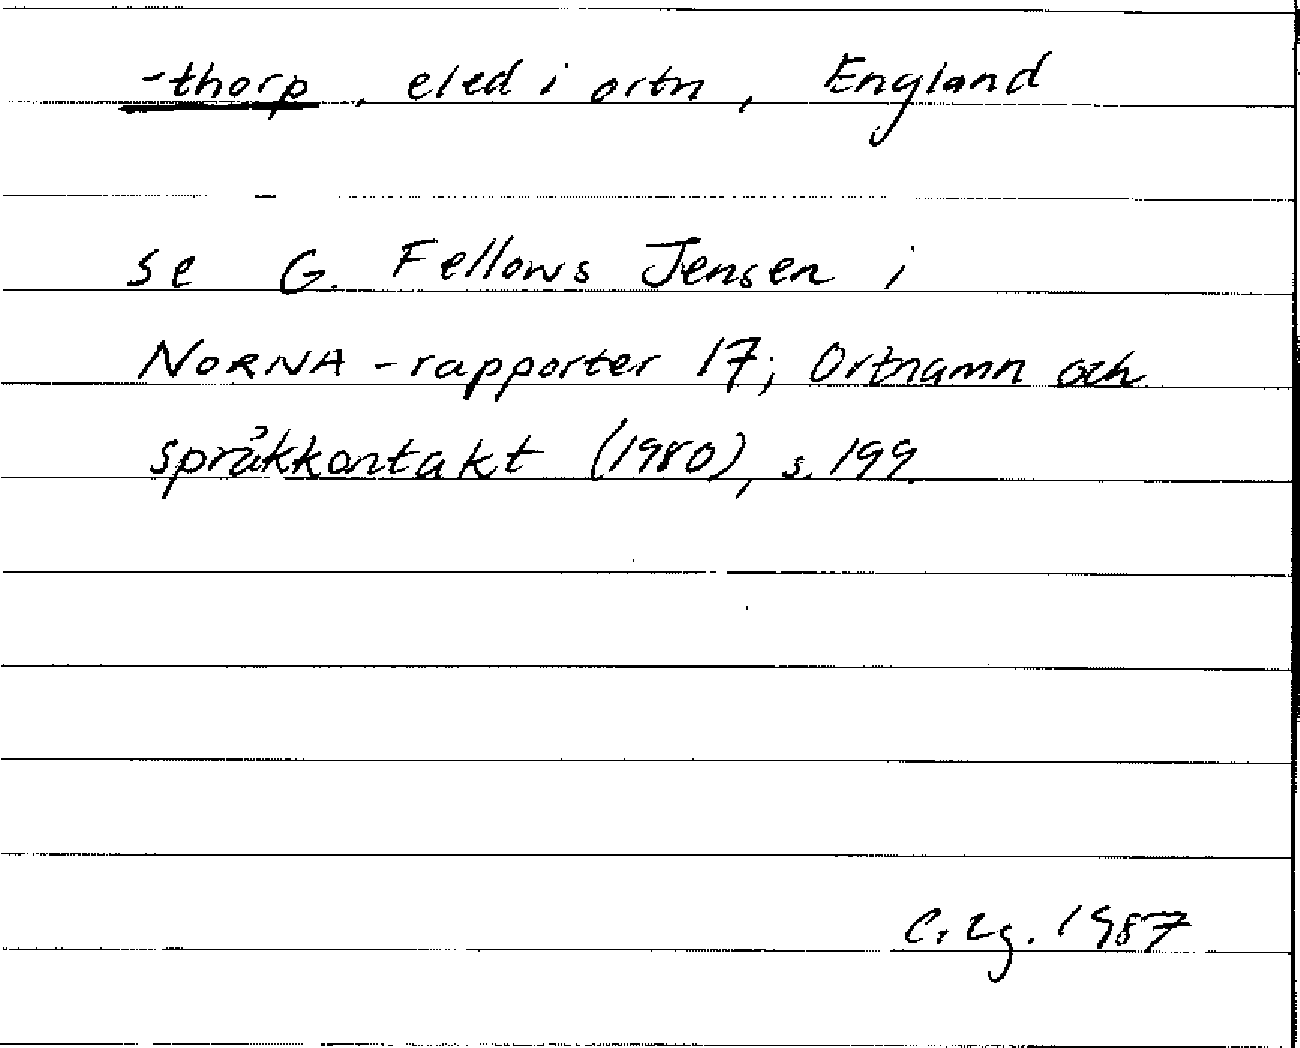 -thorp, eled i ortn, England
se G. Fellows Jensen i
NORNA-rapporter 17; Ortnamn och
språkkontakt (1980), s. 199.
1987